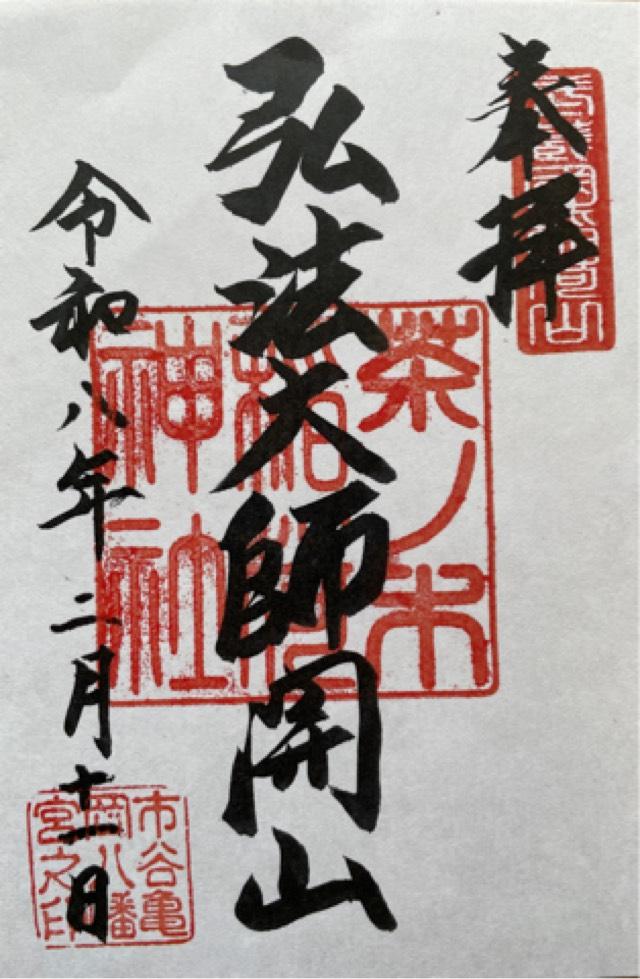 奉拝
弘法大師開山
茶ノ木
稲荷
神社
令和八年二月十一日
市谷亀
岡八幡
宮之印